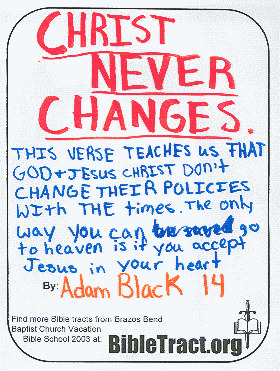 CHRIST
NEVER
CHANGES.
THIS VERSE TEACHES US THAT
GOD + JESUS CHRIST DON'T
CHANGE THEIR POLICIES
WITH THE times. The only
way you can be saved go
to heaven is if you accept
Jesus in your heart
By: Adam Black 14
Find more Bible tracts from Brazos Bend
Baptist Church Vacation
Bible School 2003 at: BibleTract.org